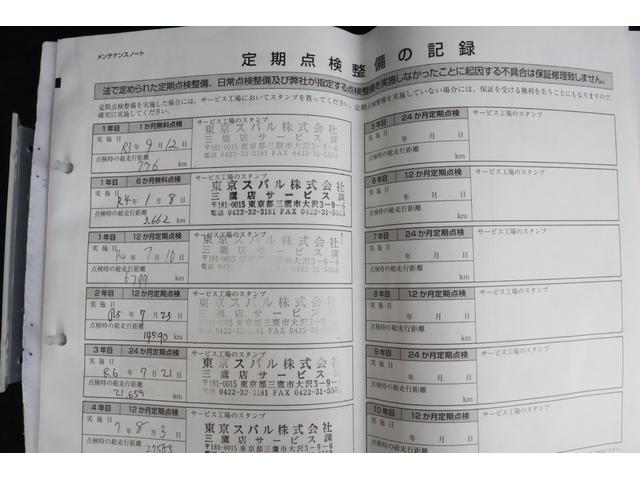 メンテナンスノート
定期点検整備の記録
法で定められた定期点検整備、日常点検整備及び弊社が指定する点検整備を実施しなかったことに起因する不具合は保証修理致しません。
定期点検整備を実施した場合には、サービス工場においてスタンプを貰ってください。定期点検整備を実施していない場合には、保証を受ける権利を失うこともありますので、
確実に実施してください。
1年目 1か月無料点検 サービス工場のスタンプ
実施日 R3年9月12日
点検時の総走行距離
776 km
東京スバル株式会社
三鷹店サービス課
〒181-0015 東京都三鷹市大沢3-9-6
電話 0422-32-3181 FAX 0422-31-5553
1年目 6か月無料点検 サービス工場のスタンプ
実施日 R4年1月8日
点検時の総走行距離
3,662 km
東京スバル株式会社
三鷹店サービス課
〒181-0015 東京都三鷹市大沢3-9-6
電話 0422-32-3181 FAX 0422-31-5553
1年目 12か月定期点検 サービス工場のスタンプ
実施日 R4年7月10日
点検時の総走行距離
6799 km
東京スバル株式会社
三鷹店サービス課
〒181-0015 東京都三鷹市大沢3-9-6
電話 0422-32-3181 FAX 0422-31-5553
2年目 12か月定期点検 サービス工場のスタンプ
実施日 R5年7月23日
点検時の総走行距離
14590 km
東京スバル株式会社
三鷹店サービス課
〒181-0015 東京都三鷹市大沢3-9-6
電話 0422-32-3181 FAX 0422-31-5553
3年目 24か月定期点検 サービス工場のスタンプ
実施日 R6年7月21日
点検時の総走行距離
21,659 km
東京スバル株式会社
三鷹店サービス課
〒181-0015 東京都三鷹市大沢3-9-6
電話 0422-32-3181 FAX 0422-31-5553
4年目 12か月定期点検 サービス工場のスタンプ
実施日 7年8月3日
点検時の総走行距離
km
東京スバル株式会社
三鷹店サービス課
〒181-0015 東京都三鷹市大沢3-9-6
5年目 24か月定期点検 サービス工場のスタンプ
実施日 年 月 日
点検時の総走行距離
km
6年目 12か月定期点検 サービス工場のスタンプ
実施日 年 月 日
点検時の総走行距離
km
7年目 24か月定期点検 サービス工場のスタンプ
実施日 年 月 日
点検時の総走行距離
km
8年目 12か月定期点検 サービス工場のスタンプ
実施日 年 月 日
点検時の総走行距離
km
9年目 24か月定期点検 サービス工場のスタンプ
実施日 年 月 日
点検時の総走行距離
km
10年目 12か月定期点検 サービス工場のスタンプ
実施日 年 月 日
点検時の総走行距離
km